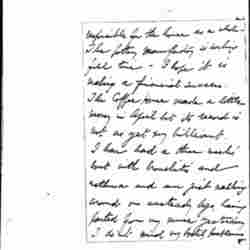 responsible for the house as a whole.
The pottery manufactory is working
full time - I hope it is
making a financial success.
The Coffee House made a little
money in April but its record is
not as yet very brilliant.
I have had a three weeks'
bout with bronchitis and
asthma and am just walking
around on unsteady legs, having
parted from my nurse yesterday
I do not mind my